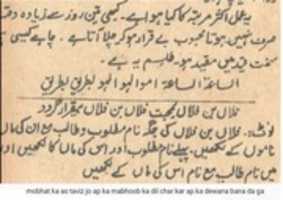 یہ عمل اکثر مرتبہ کا کیا ہوا ہے۔ کبھی تین روز سے زیادہ دفعہ
صرف نہیں ہوتا محبوب بے قرار ہو کر چلا آتا ہے۔ چاہے کیسی ہی
سخت قید میں مقید ہو۔ طلسم یہ ہے۔
الساعة الساعة
فلاں بن فلاں بمحبت فلاں بن فلاں بیقرار گردد
نوٹ:۔ فلاں بن فلاں کی جگہ نام مطلوب و طالب مع ان کی ماں
ناموں کے لکھیں۔ پہلے نام مطلوب اور اس کی ماں کا لکھیں اور
میں نام طالب مع نام اس کی ماں کے لکھیں
mobhat ka ao taviz jo ap ka mahboob ka dil char kar ap ka dewana bana da ga